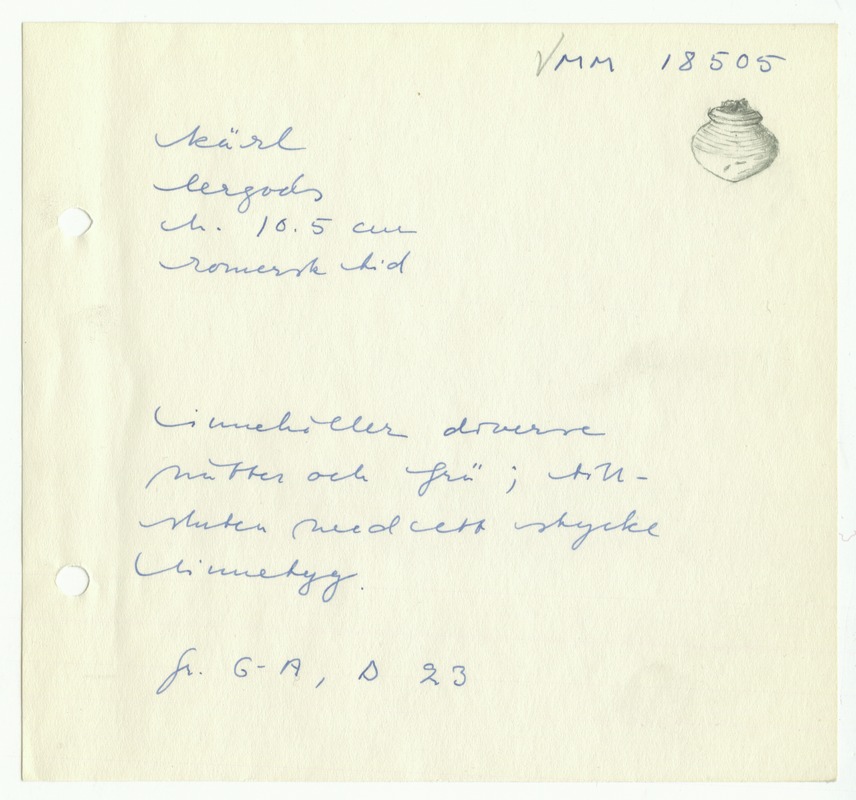 MM 18505
kärl
lergods
h. 10.5 cm
romersk tid
innehåller diverse
nötter och frö ; till-
sluten med ett stycke
linnetyg.
gr. G-A, D 23